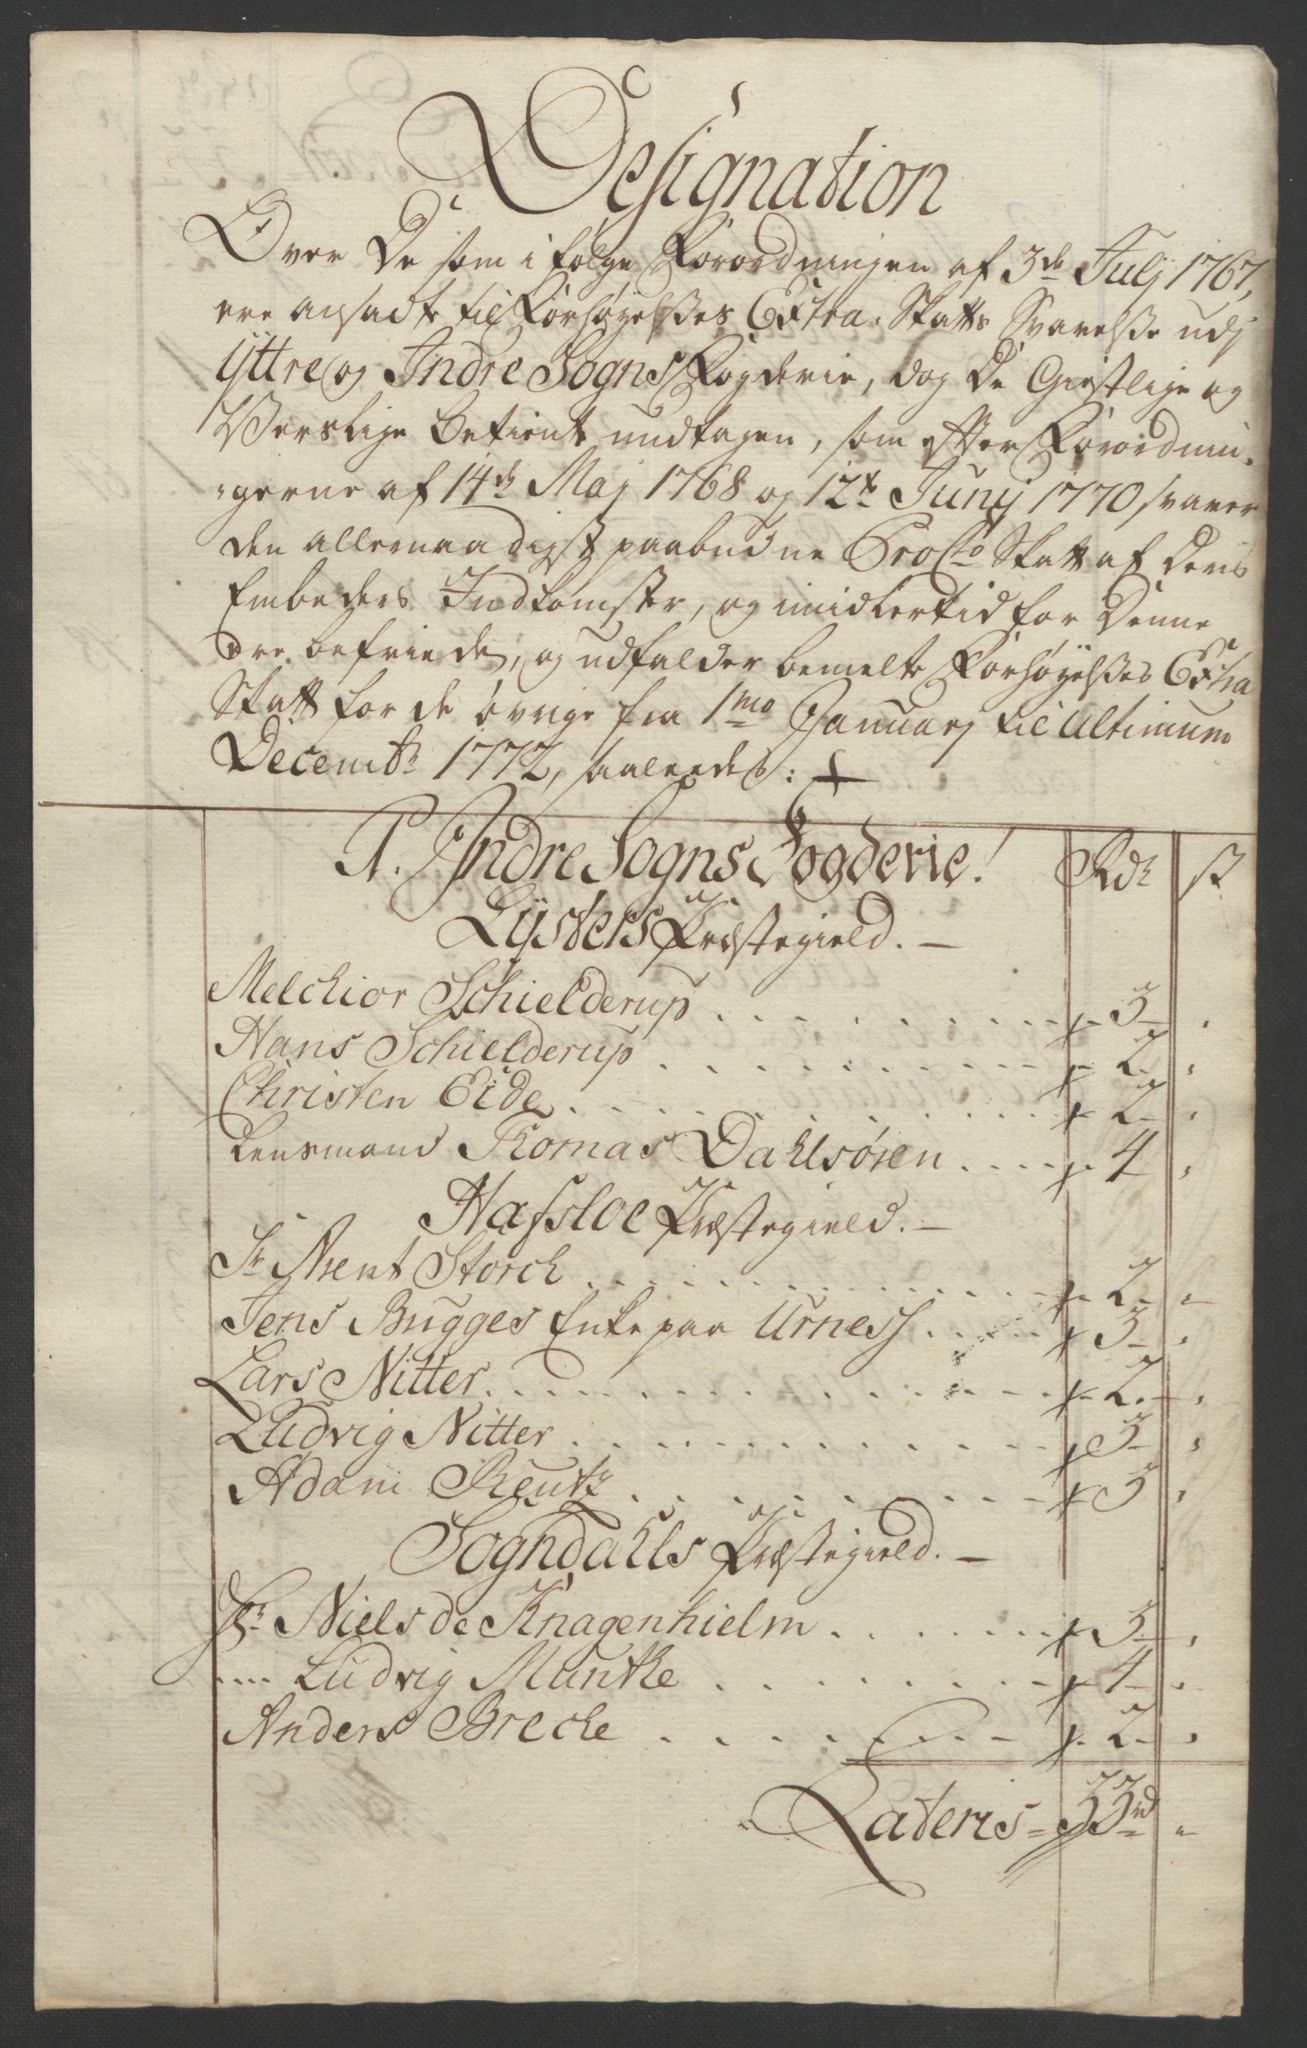 Designation
Over De som i følge Forordningen af 3de Julj 1767,
ere ansadte til Forhøyelsses Extra Skatts Svarelsse udj
Yttre og Indre Sogns Fogderie, dog De Giestlige og
Verslige betiente undtagen, som efter Forordnin¬
¬gerne af 14de Maj 1768 og 12te Junij 1770 svarer
den allernaadigst paabudne Procto Skatt af Deris
Embeders Indkomster, og imidlertid for Denne
ere befriede, og udfalder bemelte Forhøyelsses Extra
Skatt for de øvrige fra 1mo Januarj til Ultimum
Decembr 1772, saaleedes:
1. Indre Sogns Fogderie!
Rdr
s
Lysters Præstegield. —
Melchior Schielderup . . . 3 "
Hans Schielderup . . . 2 "
Christen Eide . . . 2 "
Lensmand Thomas Dahlsøren . . . 4 "
Hafsloe Præstegield. —
Sr Ment Storch . . . 2 "
Jens Bugges Enke paa Urness . . . 3 "
Lars Nitter . . . 2 "
Ludvig Nitter . . . 3 "
Adam Reutz . . . 3 "
Sogndahls Præstegield. —
Hr Niels de Knagenhielm . . . 3 "
---- Ludvig Munthe . . . 4 "
Anders Breche . . . 2 "
Lateris = 33rd "